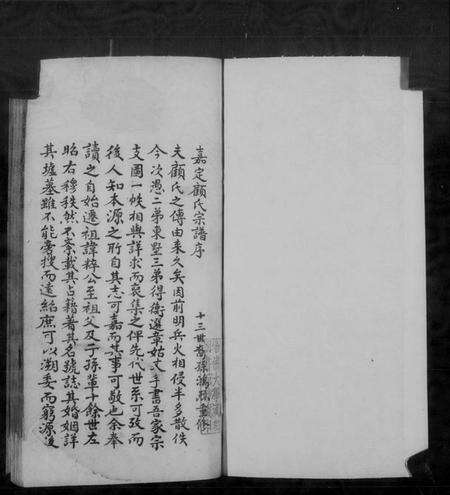 嘉定顧氏宗譜序
十三世裔孫鴻
夫顧氏之傳由來久矣因前明兵火相侵半多散佚
今次憑二弟東墅三弟得衡選章姑丈手書吾家宗
支圖一帙相與詳求而裒集之俾先代世系可攷而
後人知本源之所自其志可嘉而其事可敬也余奉
讀之自始遷祖諱粹公至祖父及子孫輩十餘世左
昭右穆秩然不紊載其占籍著其名號誌其婚姻詳
其墟墓雖不能旁搜而遠紹庶可以溯委而窮源後